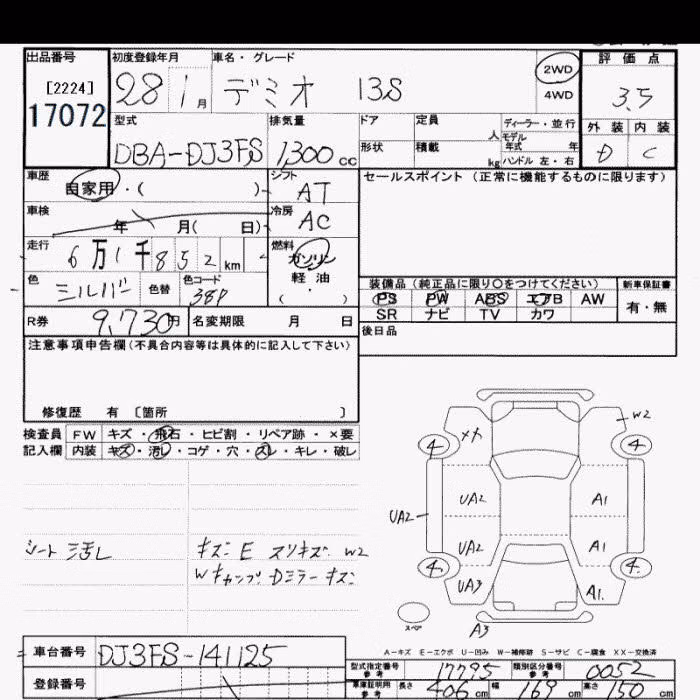 出品番号 初度登録年月 車名・グレード 評価点
[2224] 28 1月 デミオ 13S 2WD 3.5
17072 4WD 外装 内装
型式 排気量 ドア 定員 人 ディーラー・並行
モデル
年式 年
DBA-DJ3FS 1,300 cc 形状 積載 kg ハンドル 左・右 D C
車歴 自家用・( ) シフト AT セールスポイント (正常に機能するものに限ります)
車検 年 月( 日) 冷房 AC
走行 6万1千852km 燃料 ガソリン
軽油
( )
色 シルバー 色替 色コード 38P 装備品 (純正品に限り〇をつけてください) 新車保証書
PS PW ABS エアB AW 有・無
SR ナビ TV カワ
R券 9,730円 名変期限 月 日 後日品
注意事項申告欄(不具合内容等は具体的に記入して下さい)
修復歴 有 [箇所 ]
検査員 FW キズ・飛石・ヒビ割・リペア跡・×要
記入欄 内装 キズ・汚レ・コゲ・穴・スレ・キレ・破レ
W2
4 4
UA2 A1
UA2
UA2 A1
4 4
UA3 A1
スペア
A3
キズ E スリキズ W2
Wキャップ Dミラーキズ
A-キズ E-エクボ U-凹み W-補修跡 S-サビ C-腐食 XX-交換済
車台番号 DJ3FS-141125
型式指定番号 参考 17795 類別区分番号 参考 0052
登録番号 車庫証明用 参考 長さ 406cm 幅 169cm 高さ 150cm